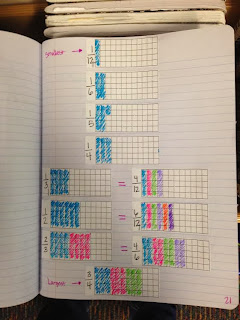 smallest → 1/12
1/6
1/5
1/4
1/3 = 4/12
1/2 = 6/12
2/3 = 4/6
Largest → 3/4
21